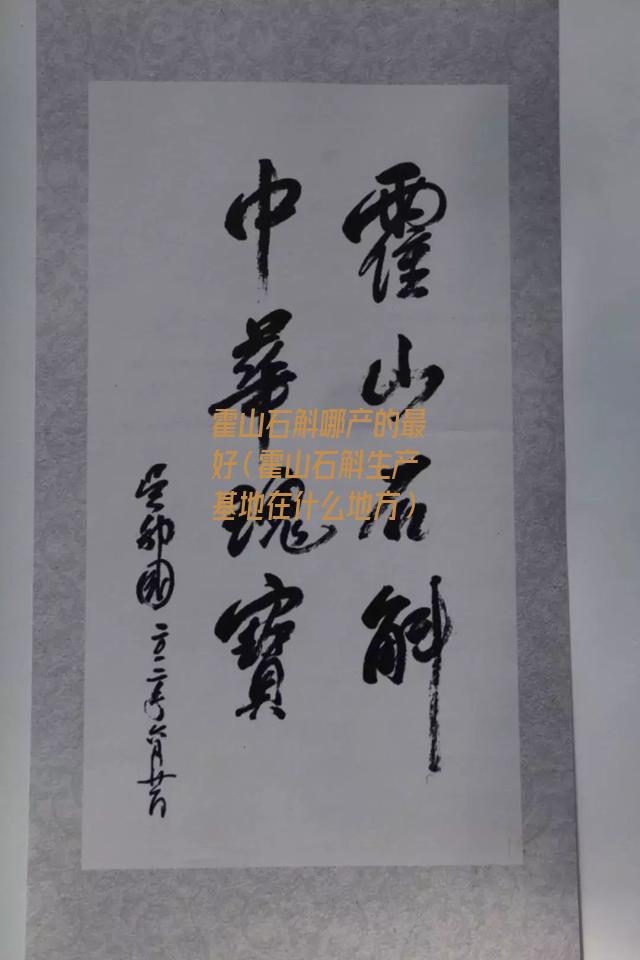 霍山石斛
中華瑰寳
吴邦國
二〇一二年六月廿六日
霍山石斛哪产的最
好(霍山石斛生产
基地在什么地方)